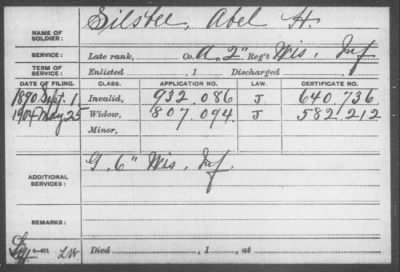 NAME OF SOLDIER: Silsbee, Abel H.
SERVICE: Late rank, Co. A, 2" Reg't Wis. Inf
TERM OF SERVICE: Enlisted , 1 Discharged , 1
DATE OF FILING. CLASS. APPLICATION NO. LAW. CERTIFICATE NO.
1890 Sept. 1 Invalid, 932.086 J 640.736
1904 May 25 Widow, 807.094 J 582.212
Minor,
ADDITIONAL SERVICES: G. 6" Wis. Inf.
REMARKS:
Died , 1 , at